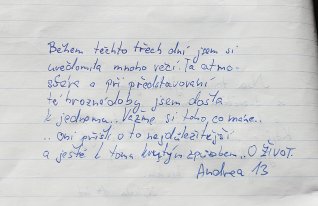 Během těchto třech dní jsem si
uvědomila mnoho věcí. Ta atmo-
sféra a při představování
té hrozné doby, jsem došla
k jednomu.. Važme si toho, co máme..
.. Oni přišli o to nejdůležitější
a ještě k tomu krutým způsobem.. O ŽIVOT.
Andrea 13